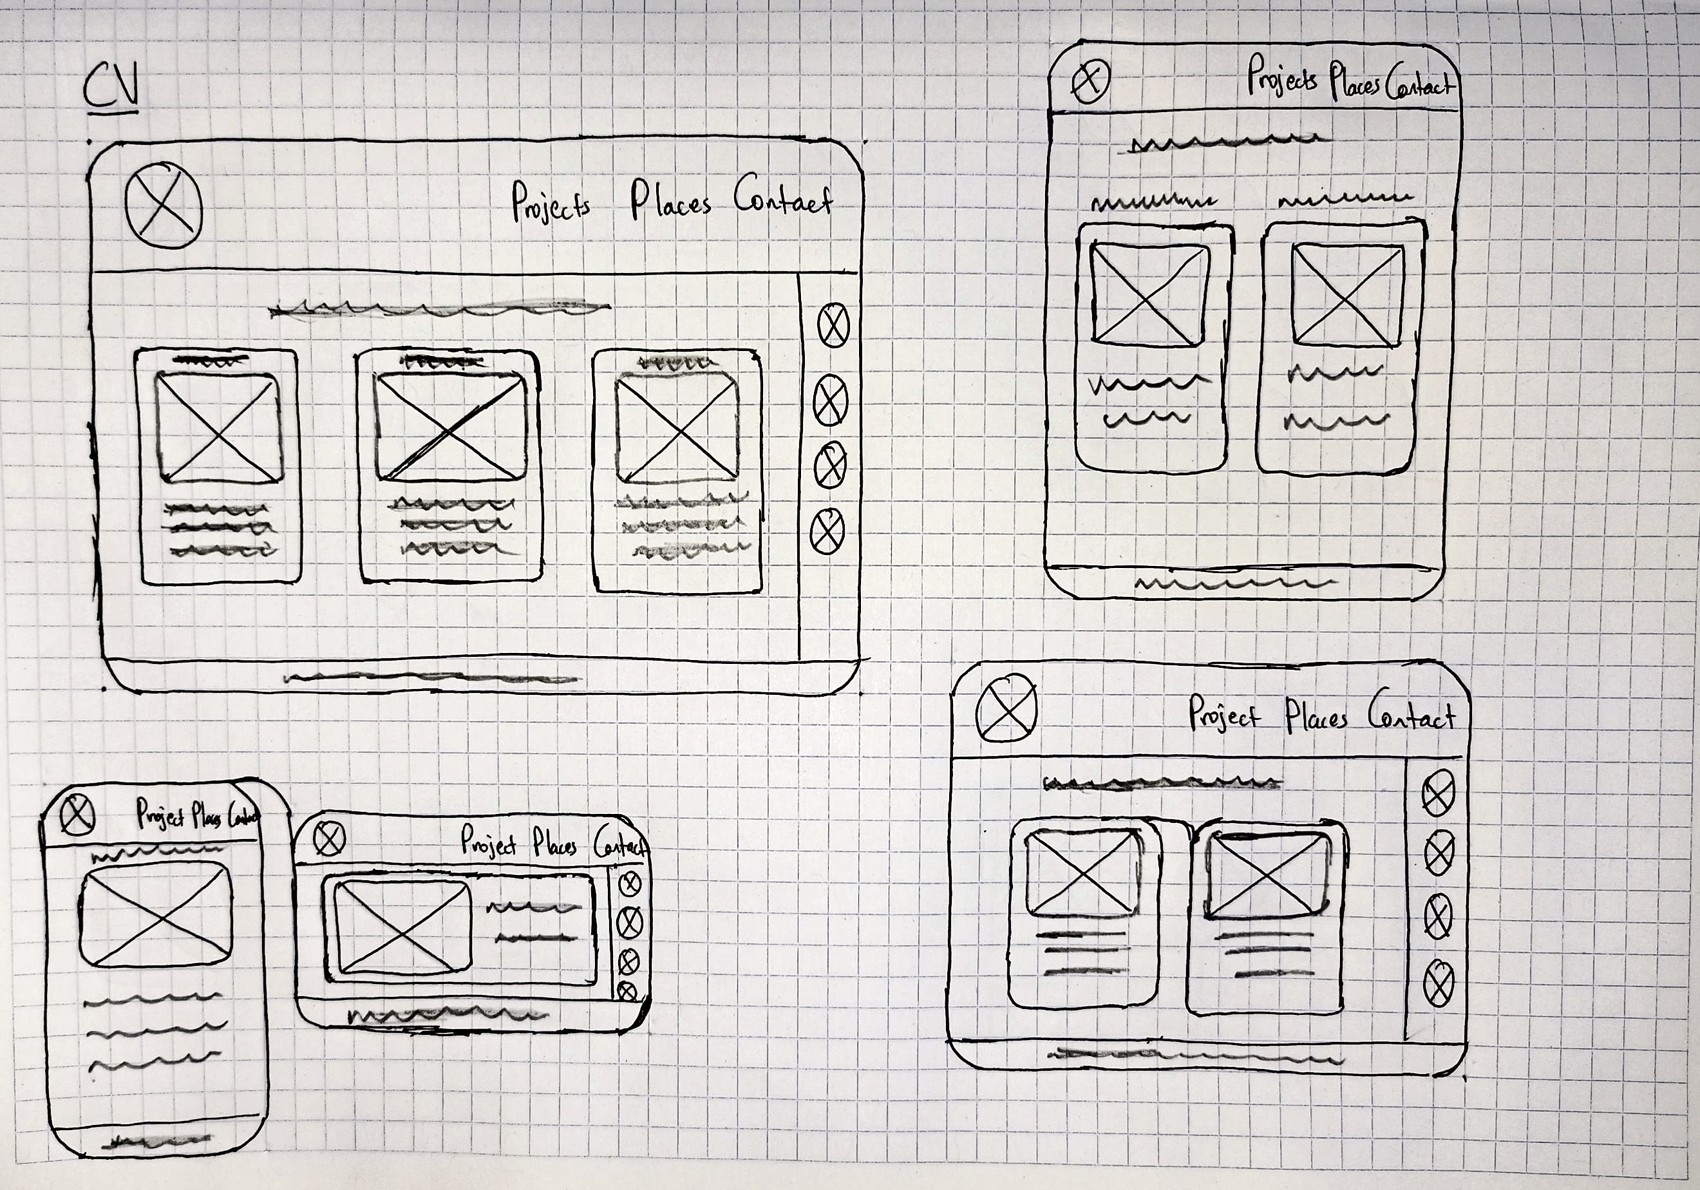 CV
Projects Places Contact
Projects Places Contact
Project Places Contact
Project Places Contact
Project Places Contact